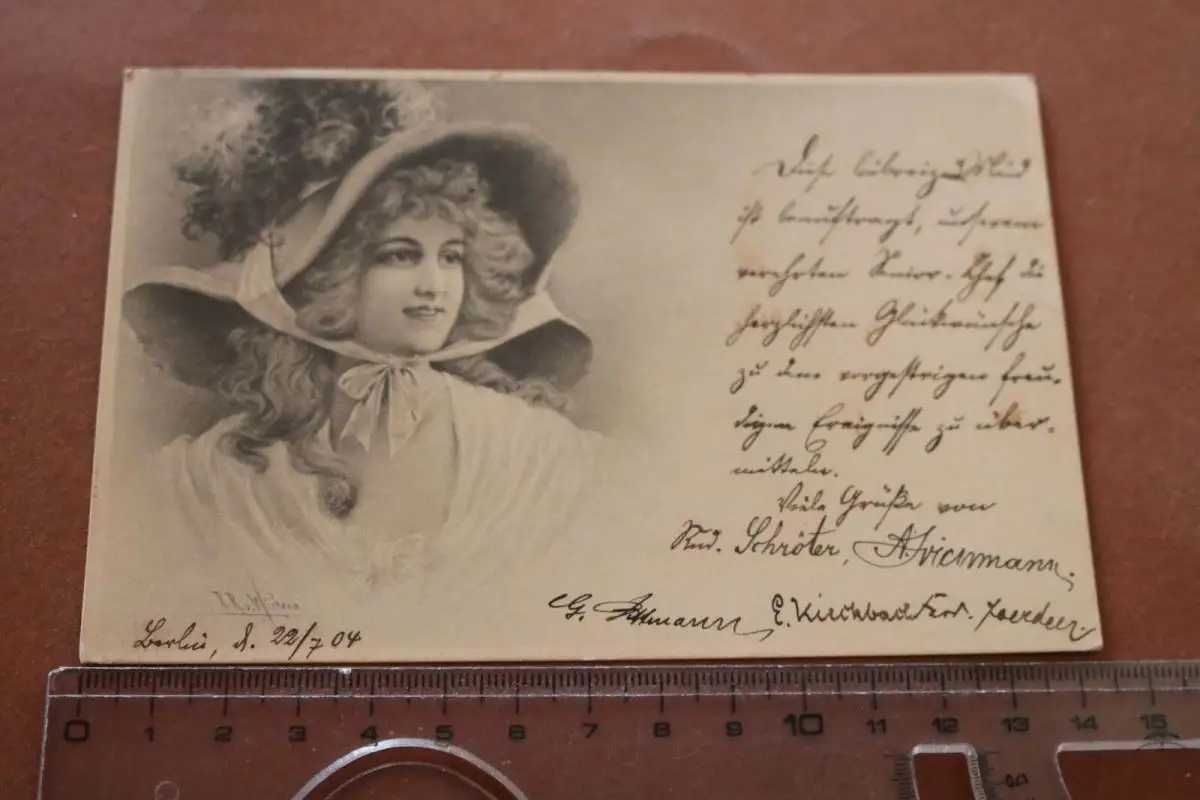 Diese liebreizende Maid
ist beauftragt, unserem
verehrten Senior-Chef die
herzlichsten Glückwünsche
zu dem vorgestrigen freu-
digen Ereignisse zu über-
mitteln.
Viele Grüße von
Rud. Schröter,
G. E. Kirchbach Ferd.
Berlin, d. 22/7 04
0 1 2 3 4 5 6 7 8 9 10 11 12 13 14 15